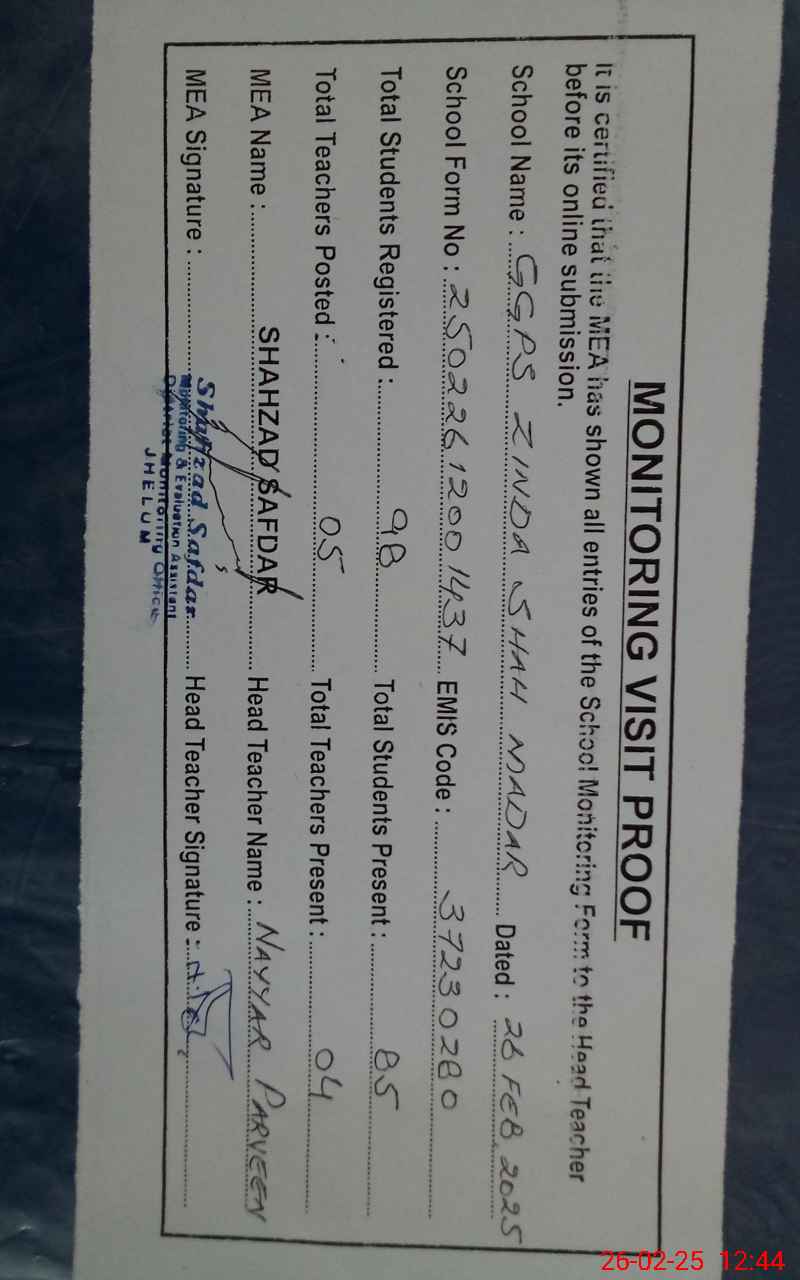 MONITORING VISIT PROOF
It is certified that the MEA has shown all entries of the School Monitoring Form to the Head Teacher
before its online submission.
School Name : GGPS ZINDA SHAH MADAR Dated : 26 FEB 2025
School Form No : 250226120014 37 EMIS Code : 37230280
Total Students Registered : 98 Total Students Present : 85
Total Teachers Posted : 05 Total Teachers Present : 04
MEA Name : SHAHZAD SAFDAR Head Teacher Name : NAYYAR PARVEEN
MEA Signature : Head Teacher Signature :
Shahzad Safdar
Monitoring & Evaluation Assistant
District Monitoring Office
JHELUM
26-02-25 12:44